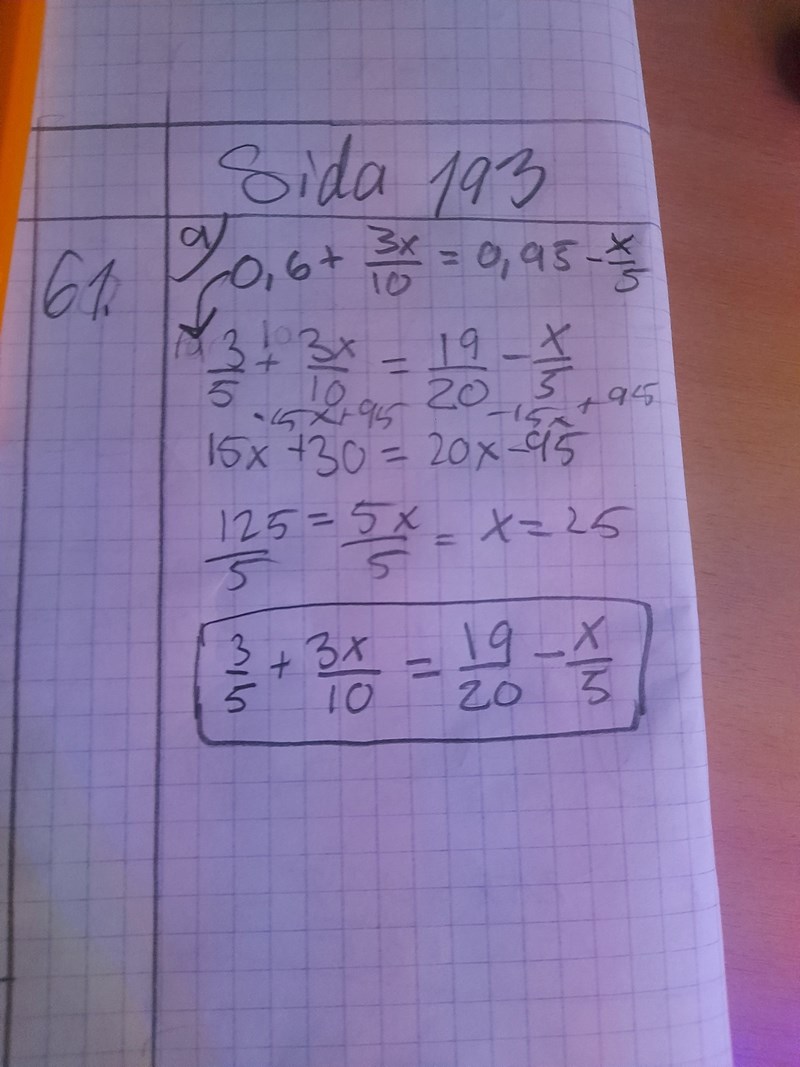 Sida 193
61. a) 0,6 + 3x/10 = 0,95 - x/5
3/5 + 3x/10 = 19/20 - x/5
-15x+95 -15x+95
15x + 30 = 20x - 95
125/5 = 5x/5 = x = 25
3/5 + 3x/10 = 19/20 - x/5